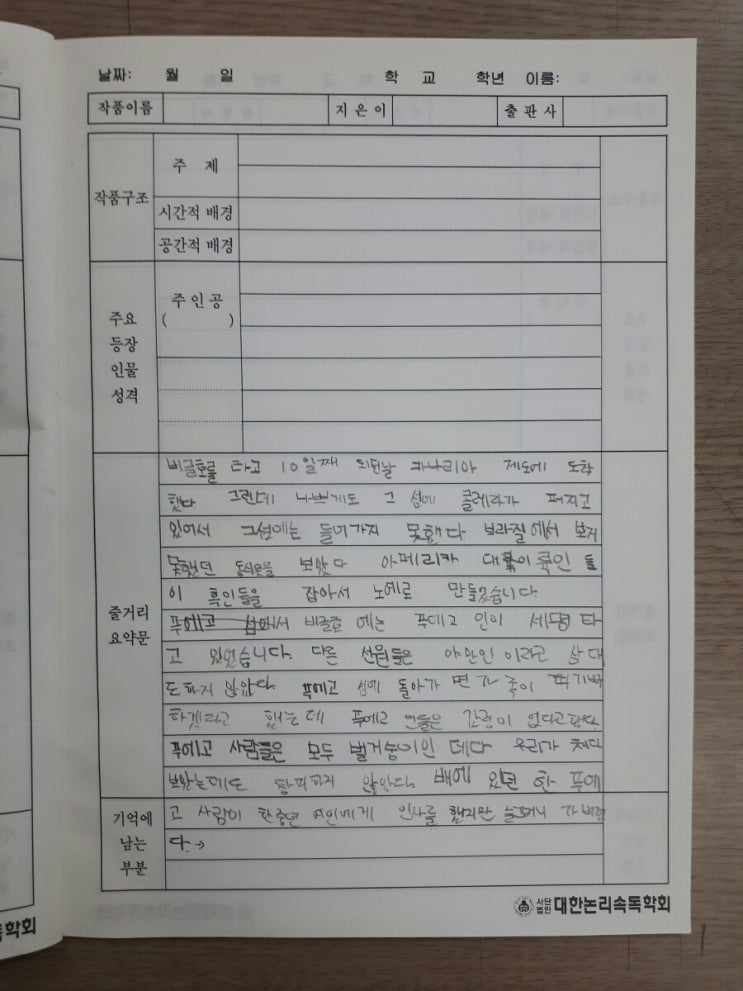 날짜: 월 일 학 교 학년 이름:
작품이름 지 은 이 출 판 사
작품구조
주 제
시간적 배경
공간적 배경
주요
등장
인물
성격
주 인 공
( )
줄거리
요약문
비글호를 타고 10일째 되던날 카나리아 제도에 도착
했다 그런데 나쁘게도 그 섬에 콜레라가 퍼지고
있어서 그섬에는 들어가지 못했다. 브라질에서 보지
못했던 동식물을 보았다 아메리카 대륙이 흑인 들
이 흑인들을 잡아서 노예로 만들었습니다.
비글호 에는 푸에고 인이 세명 타
고 있었습니다. 다른 선원들은 야만인 이라고 상대
도 하지 않았다. 푸에고 섬에 돌아가 면 가 족이
하겠다고 했는데 푸에고 인들은 감정이 없다고한다.
푸에고 사람들은 모두 벌거숭이인 데다 우리가 쳐다
보았는데도 창피하지 않았다. 배에 있던 한 푸에
기억에
남는
부분
고 사람이 한중년 여인에게 인사를 했지만 슬그머니 가버렸
다. →
사단
법인 대한논리속독학회